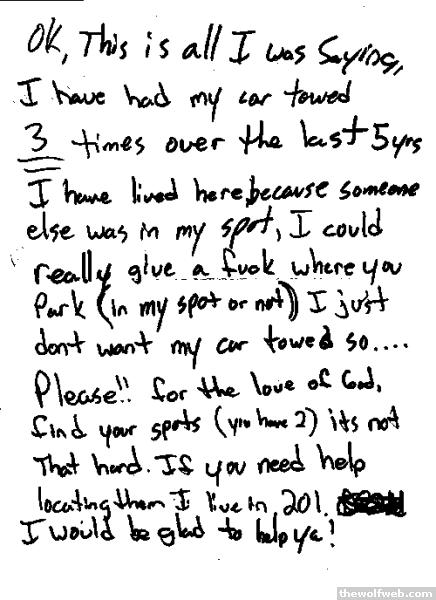 OK, This is all I was Saying,
I have had my car towed
3 times over the last 5 yrs
I have lived here because someone
else was in my spot, I could
really give a fuck where you
Park (in my spot or not) I just
don't want my car towed so....
Please!! for the love of God,
find your spots (you have 2) its not
That hard. If you need help
locating them I live in 201.
I would be glad to help ya!
thewolfweb.com